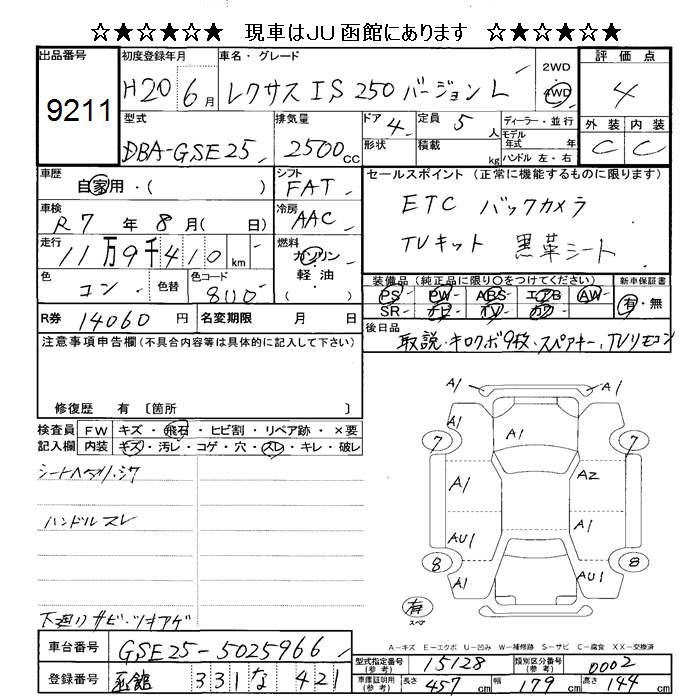 ☆★☆★☆★ 現車はJU函館にあります ☆★☆★☆★
出品番号 初度登録年月 車名・グレード 2WD 評価点
9211 H20 6月 レクサス IS 250 バージョン L 4WD 4
型式 排気量 ドア 4 定員 5 人 ディーラー・並行 外装 内装
DBA-GSE25 2500cc 形状 積載 kg モデル年式 年 C C
ハンドル 左・右
車歴 シフト セールスポイント (正常に機能するものに限ります)
自家用・( ) FAT ETC バックカメラ
車検 冷房
R7年 8月 ( 日) AAC TVキット 黒革シート
走行 燃料
11万9千410km ガソリン 軽油 ( )
色 コン 色替 色コード 8U0 装備品 (純正品に限り○をつけてください) 新車保証書
PS PW ABS エアB AW 有・無
SR ナビ TV カワ
R券 14060円 名変期限 月 日 後日品
取説・キロクボ9枚・スペアキー・TVリモコン
注意事項申告欄(不具合内容等は具体的に記入して下さい)
修復歴 有 〔箇所 〕
検査員 FW キズ・飛石・ヒビ割・リペア跡・×要
記入欄 内装 キズ・汚レ・コゲ・穴・スレ・キレ・破レ
シートヘタリ、シワ
ハンドルスレ
下廻りサビ・ツキアゲ
A1 A1
7 A1 7
A1 A2
AU1 A1
8 8
A1 AU1
有
スペア
A-キズ E-エクボ U-凹み W-補修跡 S-サビ C-腐食 XX-交換済
車台番号 GSE25-5025966
登録番号 函館 331 な 421
型式指定番号(参考) 15128 類別区分番号(参考) 0002
車庫証明用(参考) 長さ 457cm 幅 179cm 高さ 144cm